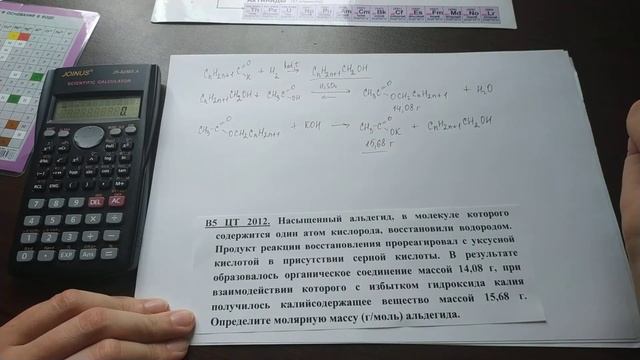 Th Pa U Np Pu Am Cm Bk Cf Es Fm Md No Lr
JOINUS
SCIENTIFIC CALCULATOR
0.
CₙH₂ₙ₊₁C=O H + H₂ → CₙH₂ₙ₊₁CH₂OH
CₙH₂ₙ₊₁CH₂OH + CH₃-C=O OH ⇄ H₂SO₄ CH₃C=O OCH₂CₙH₂ₙ₊₁ + H₂O
14,08 г
CH₃-C=O OCH₂CₙH₂ₙ₊₁ + KOH → CH₃-C=O OK + CₙH₂ₙ₊₁CH₂OH
15,68 г
В5 ЦТ 2012. Насыщенный альдегид, в молекуле которого
содержится один атом кислорода, восстановили водородом.
Продукт реакции восстановления прореагировал с уксусной
кислотой в присутствии серной кислоты. В результате
образовалось органическое соединение массой 14,08 г, при
взаимодействии которого с избытком гидроксида калия
получилось калийсодержащее вещество массой 15,68 г.
Определите молярную массу (г/моль) альдегида.
7 8 9 DEL AC
4 5 6 × ÷
1 2 3 + −
0 . EXP Ans =